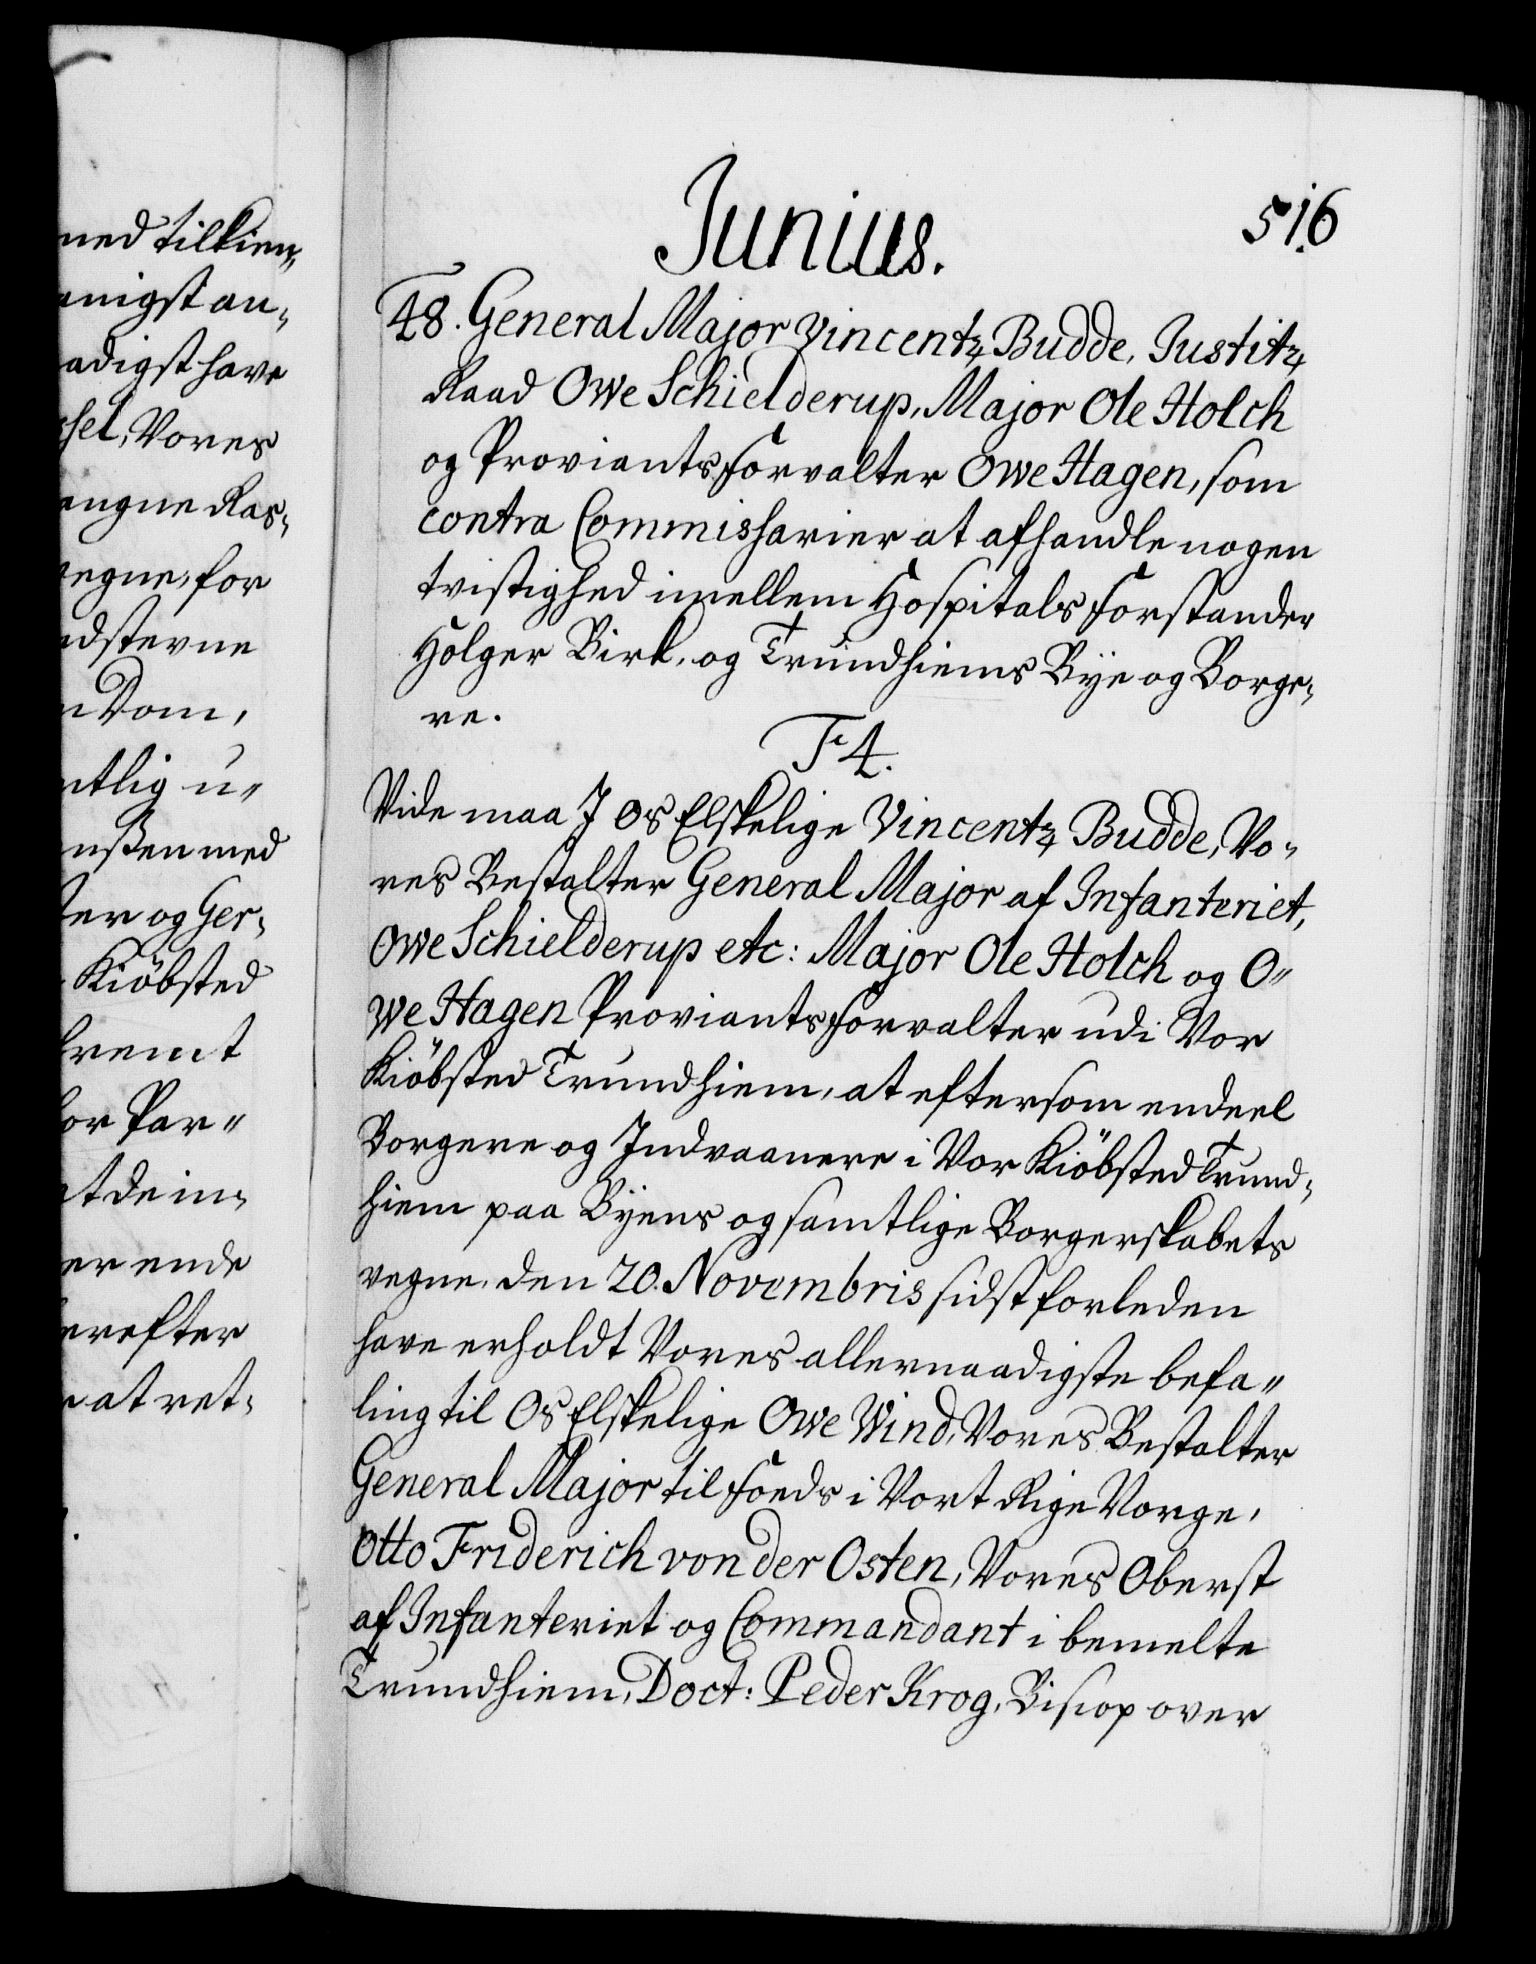 ned tilkien„
anigst an„
adigst have
sel, Vores
angne Ras„
vegne, for
dstevne
n Dom,
ntlig u„
nßen med
ter og Ger„
Kiöbsted
fremt
for Par„
at de in„
er ende
erefter
at ret„
Junius.
516
48. General Major Vincentz Budde, Justitz
Raad Owe Schielderup, Major Ole Holch
og Proviantsforvalter Owe Hagen, som
contra Commisharier at afhandle nogen
tvistighed imellem Hospitals forstander
Holger Birk, og Trundhiems Bye og Borge„
re.
F 4.
Vide maa J Os Elskelige Vincentz Budde, Vo„
res Bestalter General Major af Infanteriet,
Owe Schielderup etc: Major Ole Holch og O„
we Hagen Proviantsforvalter udi Vor
Kiöbsted Trundhiem, at eftersom endeel
Borgere og Indvaanere i Vor Kiöbsted Trund„
hiem paa Byens og samtlige Borgerskabets
vegne, den 20. Novembris sidst forleden
have erholdt Vores allernaadigste befa„
ling til Os Elskelige Owe Wind, Vores Bestalter
General Major til foeds i Vort Rige Norge,
Otto Friderich von der Osten, Vores Oberst
af Infanteriet og Commandant i bemelte
Trundhiem, Doct: Peder Krog, Bisiop over